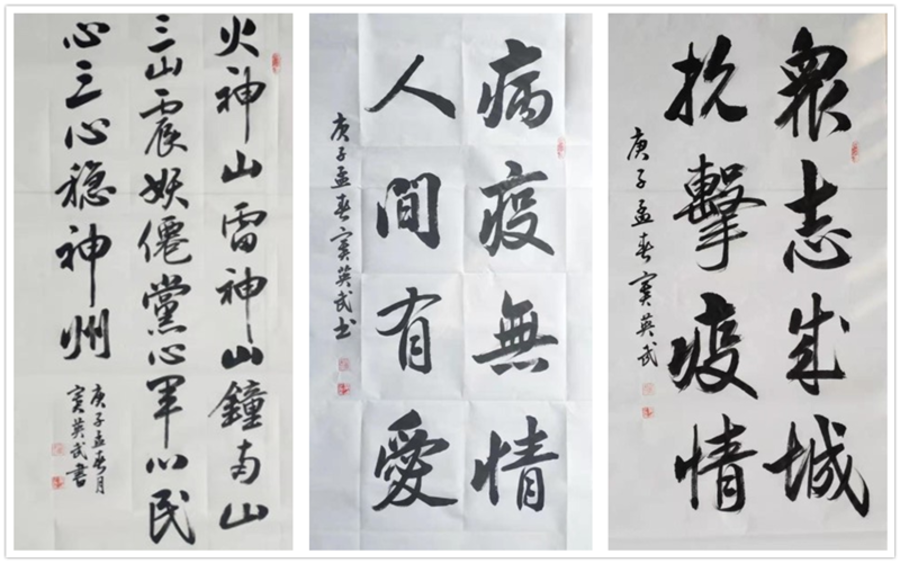 火神山雷神山鐘南山
三山震妖僊黨心軍心民
心三心穩神州
庚子孟春月
窦英武書
病疫無情
人間有愛
庚子孟春窦英武书
衆志成城
抗擊疫情
庚子孟春窦英武